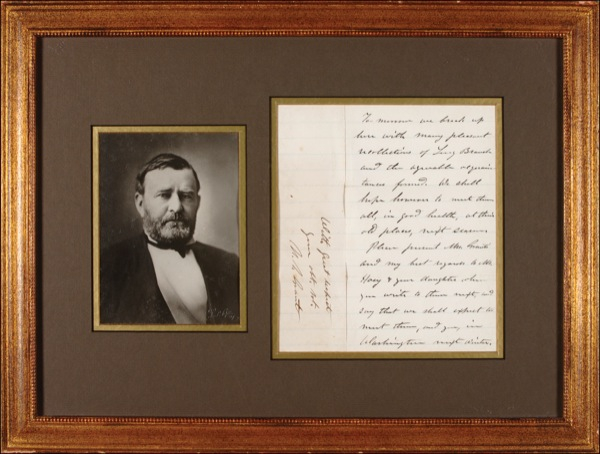 To morrow we break up
here with many pleasant
recollections of Long Branch
and the agreeable acquain-
tances formed. We shall
hope however to meet them
all, in good health, at their
old places, next season.
Please present Mrs. Grant's
and my best regards to Mrs.
Hoey & your daughter when
you write to them next, and
say that we shall expect to
meet them, and you, in
Washington next winter.
With great respect
your obt. svt.
U. S. Grant